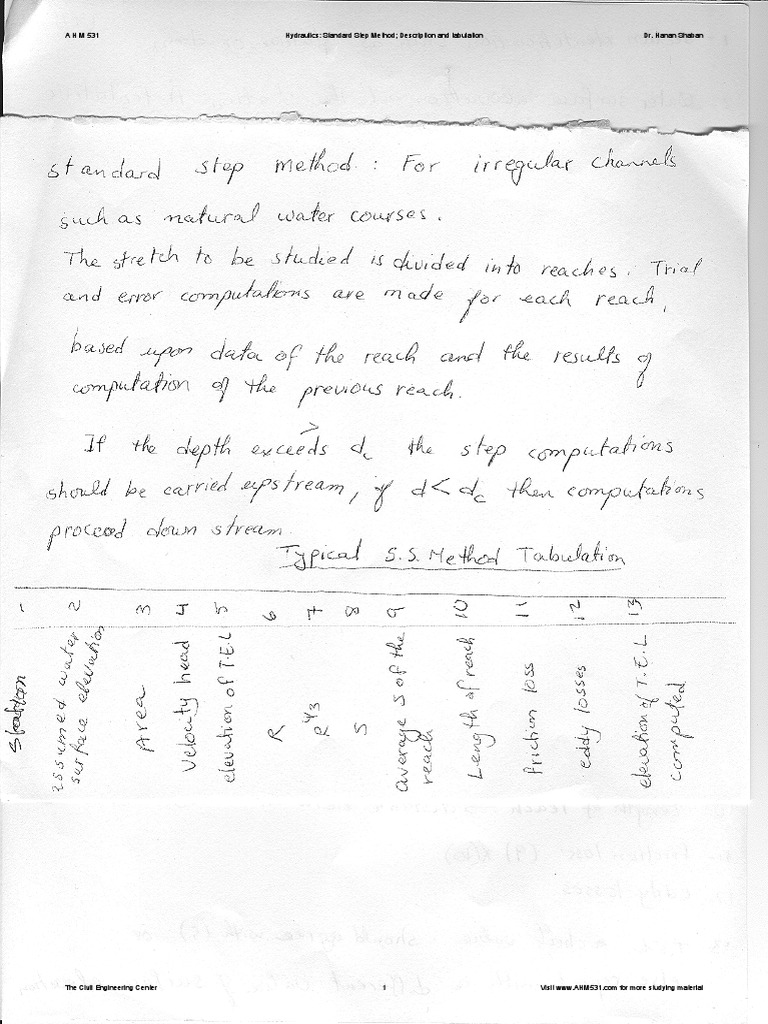 AHM 531 Hydraulics: Standard Step Method; Description and tabulation Dr. Hanan Shaban
standard step method : For irregular channels
such as natural water courses.
The stretch to be studied is divided into reaches. Trial
and error computations are made for each reach,
based upon data of the reach and the results of
computation of the previous reach.
>
If the depth exceeds dc the step computations
should be carried upstream, if d < dc then computations
proceed down stream.
Typical S.S. Method Tabulation
1 2 3 4 5 6 7 8 9 10 11 12 13
Station
assumed water
surface elevation
Area
Velocity head
elevation of T.E.L
R
R^4/3
S
average S of the
reach
Length of reach
friction loss
eddy losses
elevation of T.E.L
computed
The Civil Engineering Center 1 Visit www.AHM531.com for more studying material